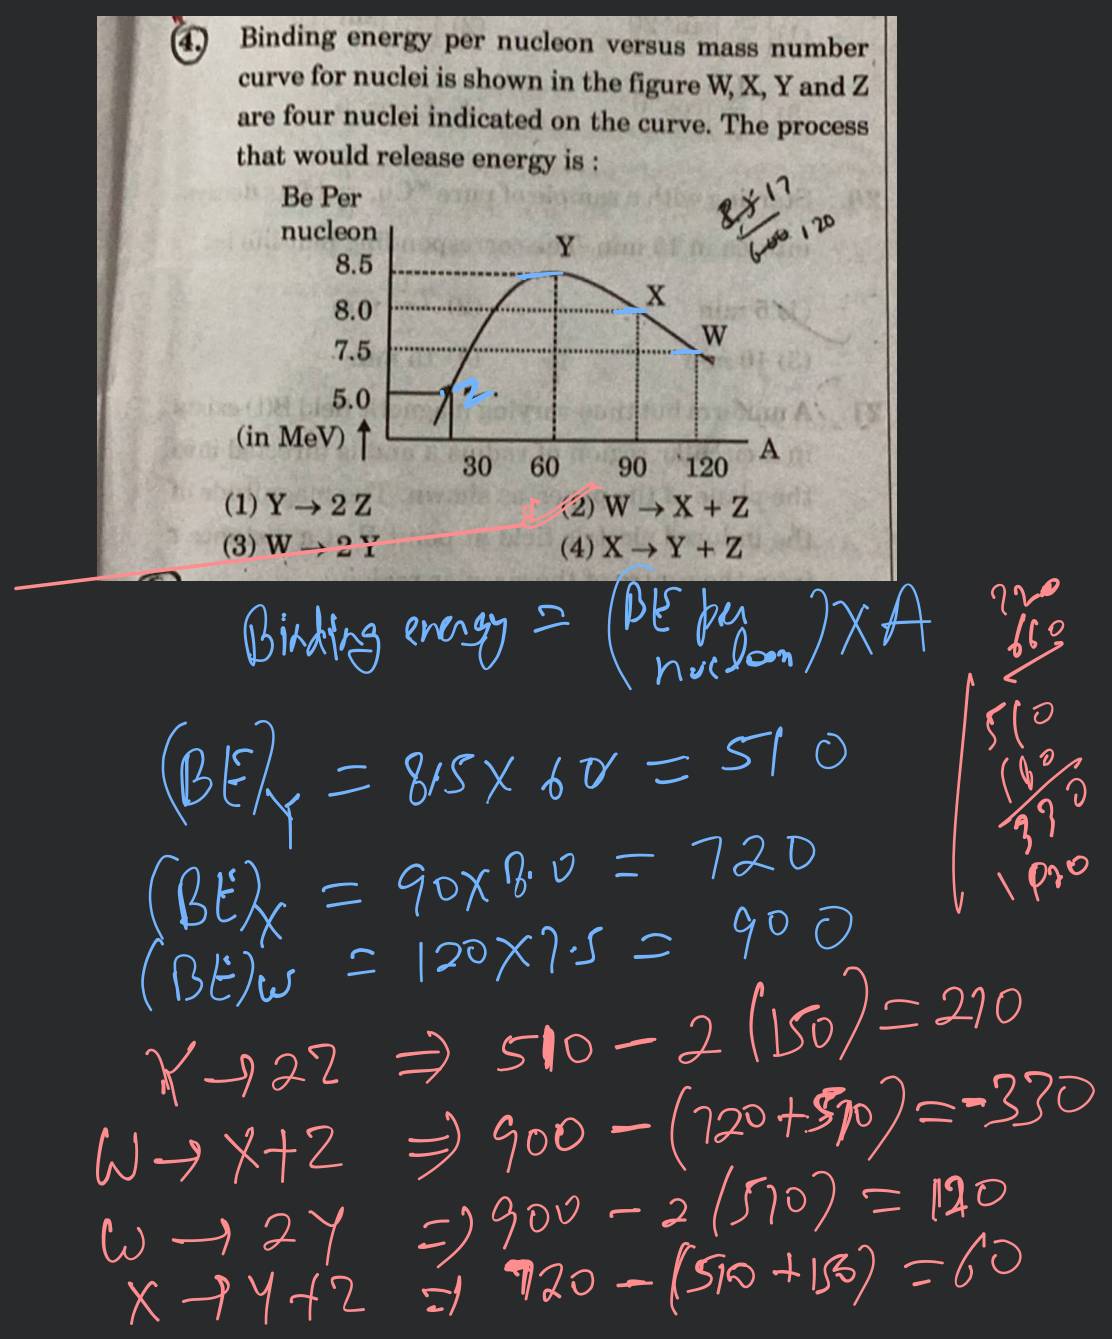 4. Binding energy per nucleon versus mass number
curve for nuclei is shown in the figure W, X, Y and Z
are four nuclei indicated on the curve. The process
that would release energy is :
Be Per
nucleon
8.5
8.0
7.5
5.0
(in MeV)
Y
X
W
Z
30 60 90 120 A
8 × 17
120
(1) Y → 2 Z (2) W → X + Z
(3) W → 2 Y (4) X → Y + Z
Binding energy = (BE per nucleon) × A
(BE)Y = 8.5 × 60 = 510
(BE)X = 90 × 8.0 = 720
(BE)W = 120 × 7.5 = 900
720
660
510
330
1020
Y → 2Z ⇒ 510 - 2 (150) = 210
W → X + Z ⇒ 900 - (720 + 510) = -330
W → 2Y ⇒ 900 - 2 (510) = 120
X → Y + Z ⇒ 720 - (510 + 150) = 60